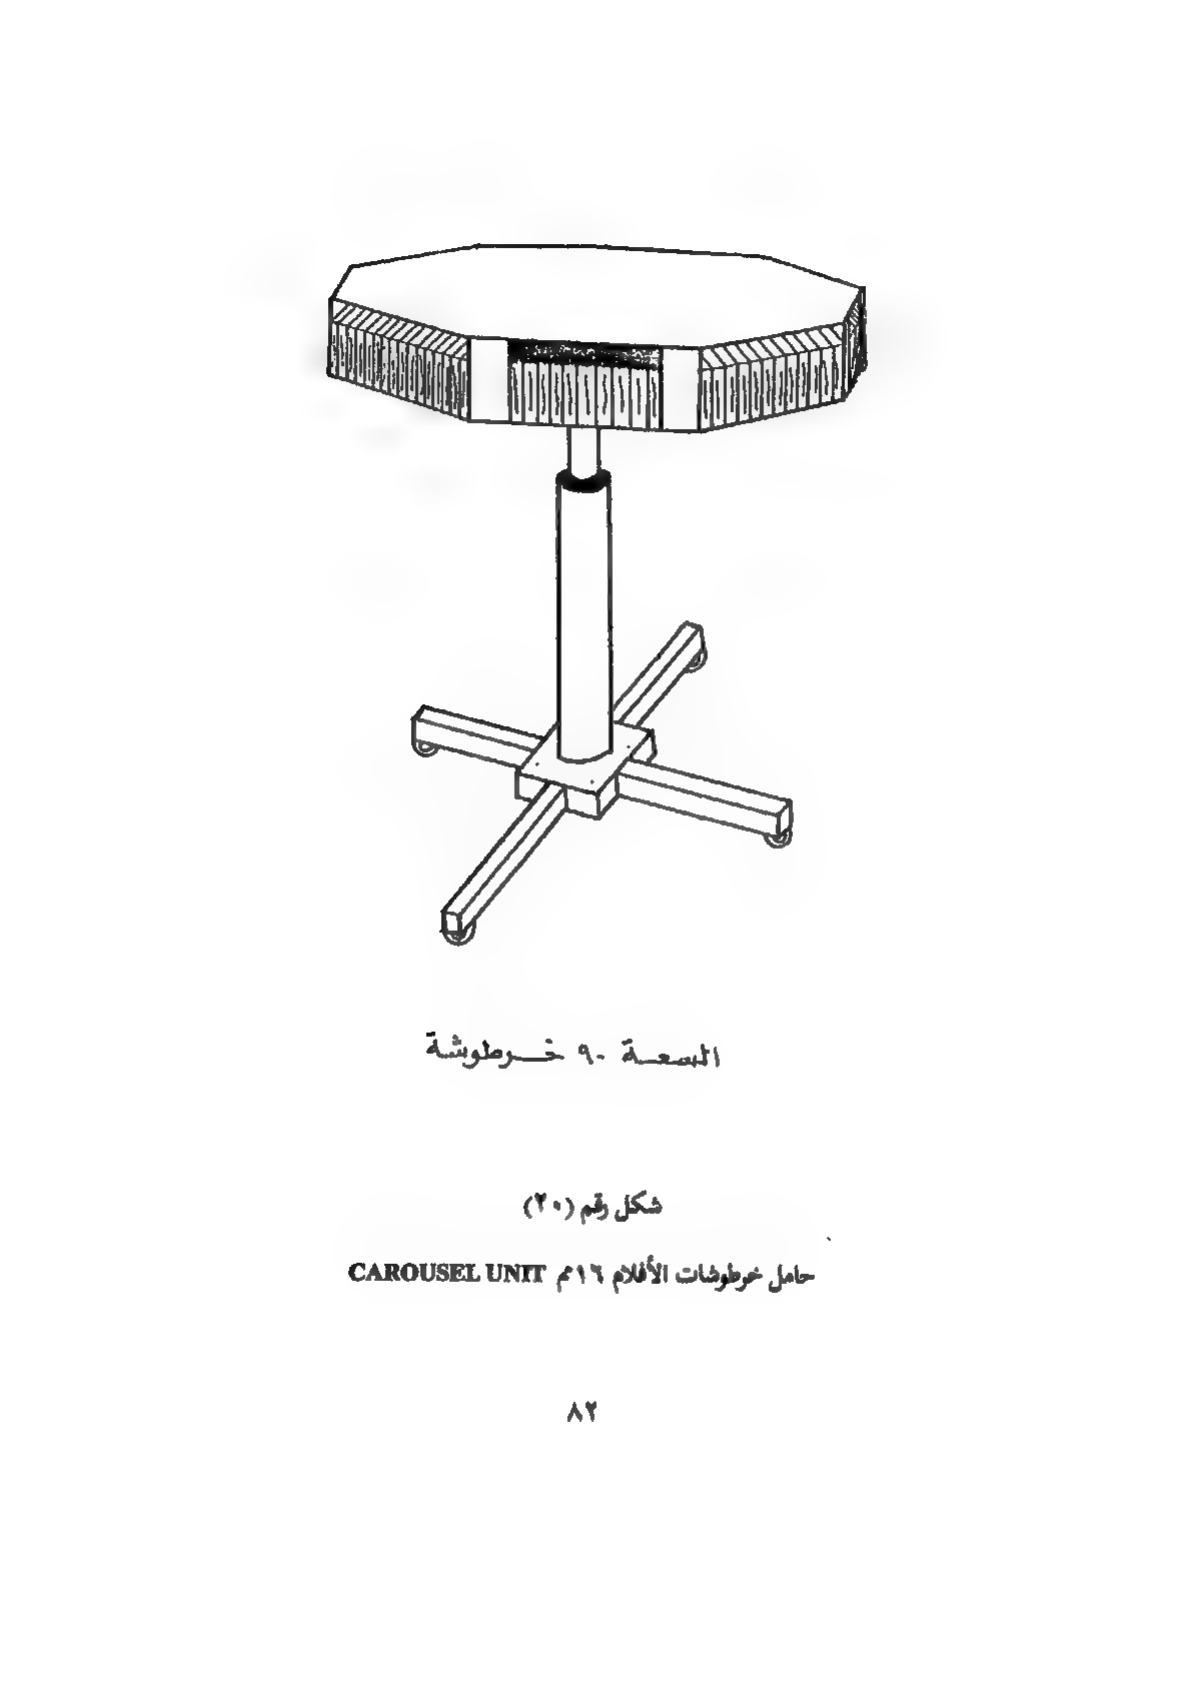 السعة ٩٠ خرطوشة
شكل رقم (٢٠)
حامل خرطوشات الأفلام ١٦مم CAROUSEL UNIT
٨٢